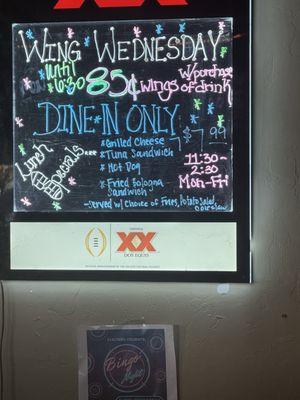 XX
WING WEDNESDAY
until 6:30 85¢ wings w/purchase of drink
DINE-IN ONLY
Lunch Specials
Grilled Cheese
Tuna Sandwich
Hot Dog
Fried bologna Sandwich
$7.99
11:30-
2:30
Mon-Fri
-Served w/ Choice of Fries, Potato Salad, Coleslaw
XX
DOS EQUIS
Bingo
Night